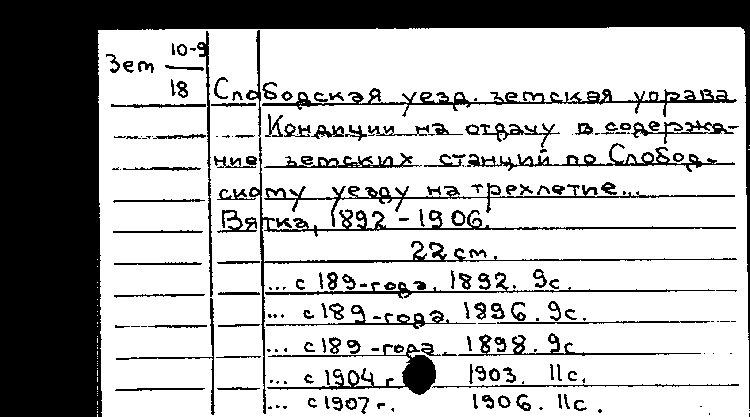 Зем 10-9
18
Слободская уезд. земская управа
Кондиции на отдачу в содержа-
ние земских станций по Слобод-
скому уезду на трехлетие...
Вятка, 1892-1906.
22 см.
... с 189-года. 1892. 9с.
... с 189-года. 1896. 9с.
... с 189-года. 1898. 9с.
... с 1904 г 1903. 11с.
... с 1907 г. 1906. 11с.